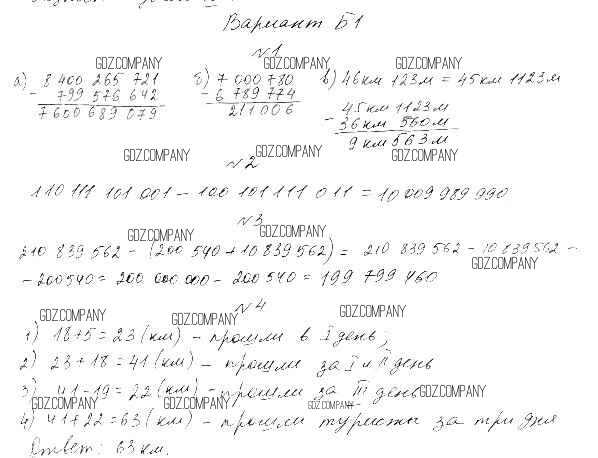 Вариант Б1
№1
GDZ.COMPANY GDZ.COMPANY GDZ.COMPANY
а) 8 400 265 721 б) 7 000 780 в) 46 км 123 м = 45 км 1123 м
- 799 576 642 - 6 789 774 45 км 1123 м
7600 689 079 211 006 - 36 км 560 м
9 км 563 м
GDZ.COMPANY GDZ.COMPANY GDZ.COMPANY
№2
110 111 101 001 - 100 101 111 011 = 10 009 989 990
№3
GDZ.COMPANY GDZ.COMPANY
210 839 562 - (200 540 + 10 839 562) = 210 839 562 - 10 839 562 -
GDZ.COMPANY
- 200 540 = 200 000 000 - 200 540 = 199 799 460
№4
GDZ.COMPANY GDZ.COMPANY GDZ.COMPANY
1) 18+5=23 (км) - прошли в I день;
2) 23+18=41 (км) - прошли за I и II день
3) 41-19=22 (км) - прошли за III день GDZ.COMPANY
GDZ.COMPANY GDZ.COMPANY GDZ.COMPANY
4) 41+22=63 (км) - прошли туристы за три дня
Ответ: 63 км.